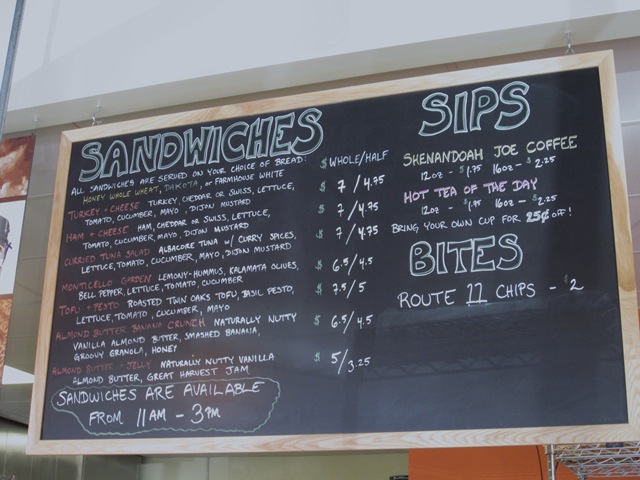 SANDWICHES
ALL SANDWICHES ARE SERVED ON YOUR CHOICE OF BREAD:
HONEY WHOLE WHEAT, DAKOTA, or FARMHOUSE WHITE
$ WHOLE/HALF
TURKEY + CHEESE TURKEY, CHEDDAR OR SWISS, LETTUCE,
TOMATO, CUCUMBER, MAYO, DIJON MUSTARD
$ 7 / 4.75
HAM + CHEESE HAM, CHEDDAR OR SWISS, LETTUCE,
TOMATO, CUCUMBER, MAYO, DIJON MUSTARD
$ 7 / 4.75
CURRIED TUNA SALAD ALBACORE TUNA W/ CURRY SPICES,
LETTUCE, TOMATO, CUCUMBER, MAYO, DIJON MUSTARD
$ 7 / 4.75
MONTICELLO GARDEN LEMONY-HUMMUS, KALAMATA OLIVES,
BELL PEPPER, LETTUCE, TOMATO, CUCUMBER
$ 6.5 / 4.5
TOFU + PESTO ROASTED TWIN OAKS TOFU, BASIL PESTO,
LETTUCE, TOMATO, CUCUMBER, MAYO
$ 7.5 / 5
ALMOND BUTTER BANANA CRUNCH NATURALLY NUTTY
VANILLA ALMOND BUTTER, SMASHED BANANA,
GROOVY GRANOLA, HONEY
$ 6.5 / 4.5
ALMOND BUTTER + JELLY NATURALLY NUTTY VANILLA
ALMOND BUTTER, GREAT HARVEST JAM
$ 5 / 3.25
SANDWICHES ARE AVAILABLE
FROM 11AM - 3PM
SIPS
SHENANDOAH JOE COFFEE
12oz - $1.75 16oz - $2.25
HOT TEA OF THE DAY
12oz - $1.75 16oz - $2.25
BRING YOUR OWN CUP FOR 25¢ OFF!
BITES
ROUTE 11 CHIPS - $2